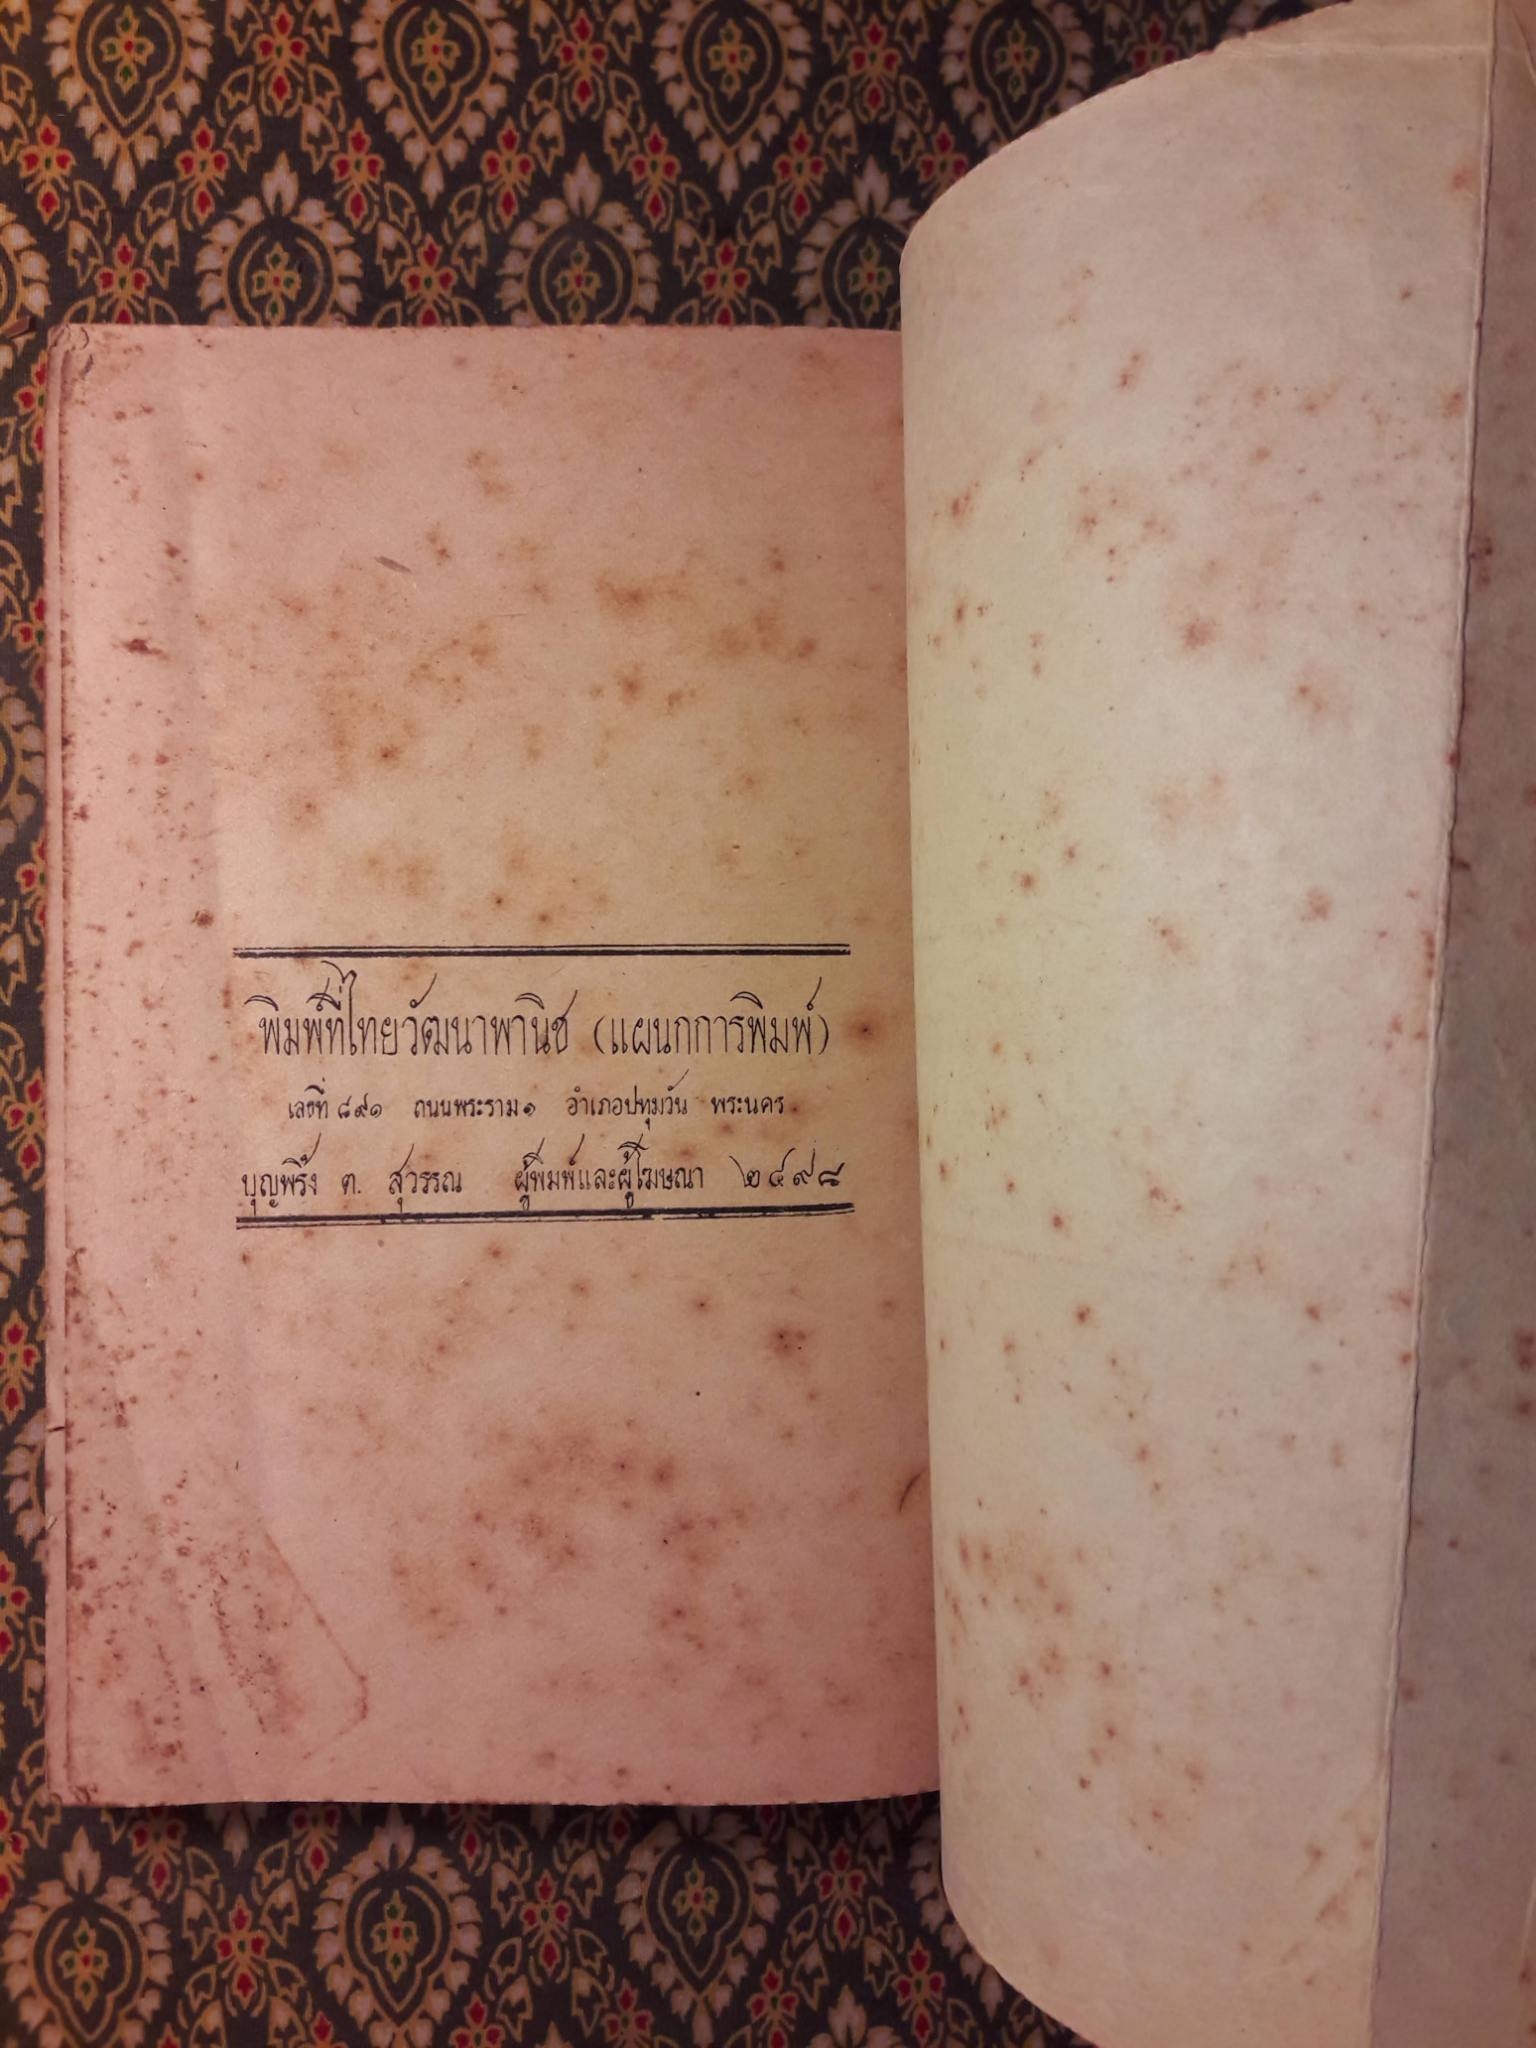 พิมพ์ที่ไทยวัฒนาพานิช (แผนกการพิมพ์)
เลขที่ ๘๙๑ ถนนพระราม ๑ อำเภอปทุมวัน พระนคร
บุญพริ้ง ต. สุวรรณ ผู้พิมพ์และผู้โฆษณา ๒๔๙๘